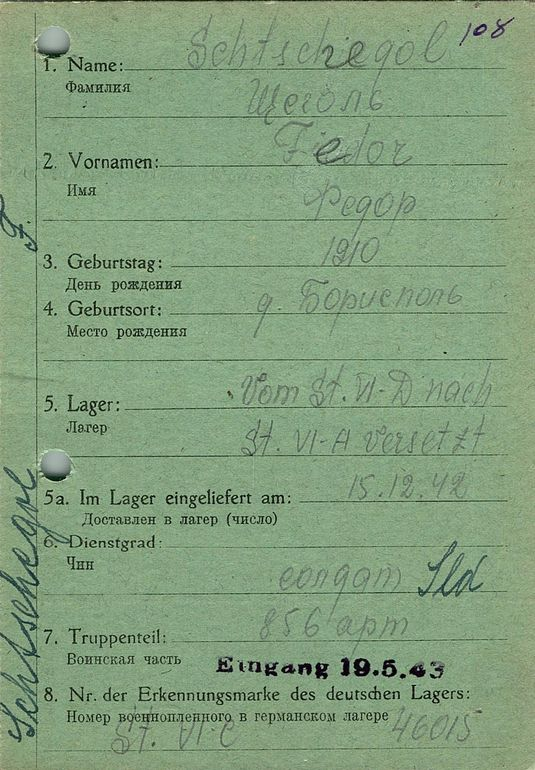 108
1. Name: Schtschegol
Фамилия
Щеголь
2. Vornamen: Fiedor
Имя
Федор
3. Geburtstag: 1910
День рождения
4. Geburtsort: д. Борисполь
Место рождения
5. Lager: Vom St. VI-D nach
Лагер
St. VI-A versetzt
5a. Im Lager eingeliefert am: 15.12.42
Доставлен в лагер (число)
6. Dienstgrad:
Чин
солдат Sld
7. Truppenteil: 856 арт
Воинская часть
Eingang 19.5.43
8. Nr. der Erkennungsmarke des deutschen Lagers:
Номер военнопленного в германском лагере 46015
St. VI-C
Schtschegol F.